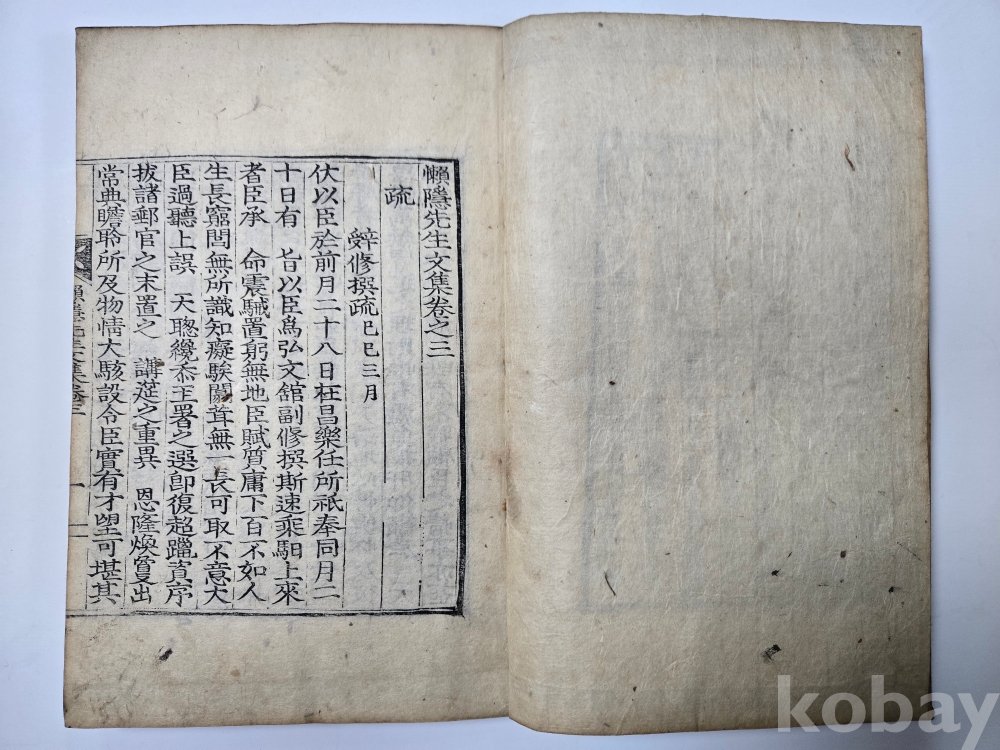 懶隱先生文集卷之三
疏
辭修撰疏 己巳三月
伏以臣於前月二十八日在昌樂任所祇奉同月二
十日有 旨以臣爲弘文館副修撰斯速乘馹上來
者臣承 命震駴置躬無地臣賦質庸下百不如人
生長窮閭無所識知癡騃闒茸無一長可取不意大
臣過聽上誤 天聰纔忝玉署之選卽復超躐資序
拔諸郵官之末置之 講筵之重異 恩隆煥敻出
常典瞻聆所及物情大駭設令臣實有才望可堪其
懶隱先生文集卷三
一
kobay